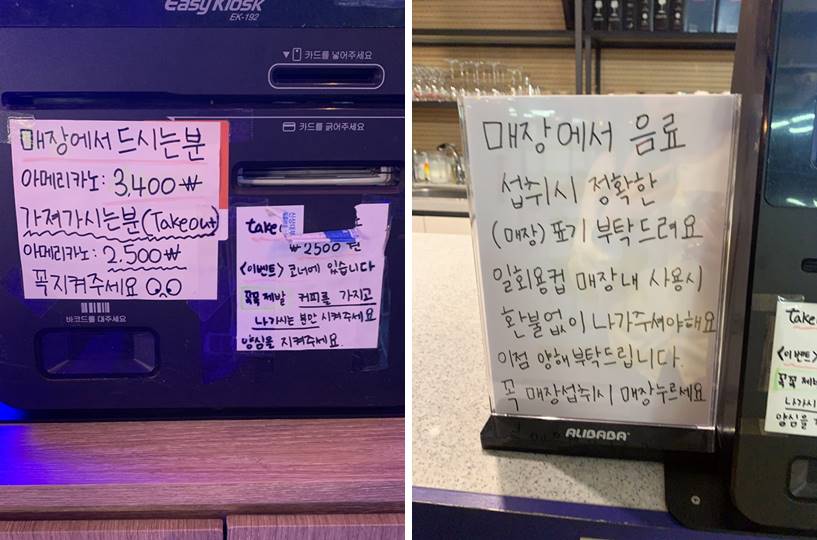 EasyKiosk
EK-192
▼ 카드를 넣어주세요
카드를 긁어주세요
매장에서 드시는분
아메리카노: 3,400₩
가져가시는분(Takeout)
아메리카노: 2.500₩
꼭지켜주세요
바코드를 대주세요
take
₩2500 원
<이벤트> 코너에 있습니다
꼭꼭 제발 커피를 가지고
나가시는 분만 시켜주세요
양심을 지켜주세요.
매장에서 음료
섭취시 정확한
(매장) 표기 부탁드려요
일회용컵 매장내 사용시
환불없이 나가주셔야해요
이점 양해부탁드립니다.
꼭 매장섭취시 매장누르세요
ALIBABA
take
<이벤트>
꼭꼭 제
나가시
양심을